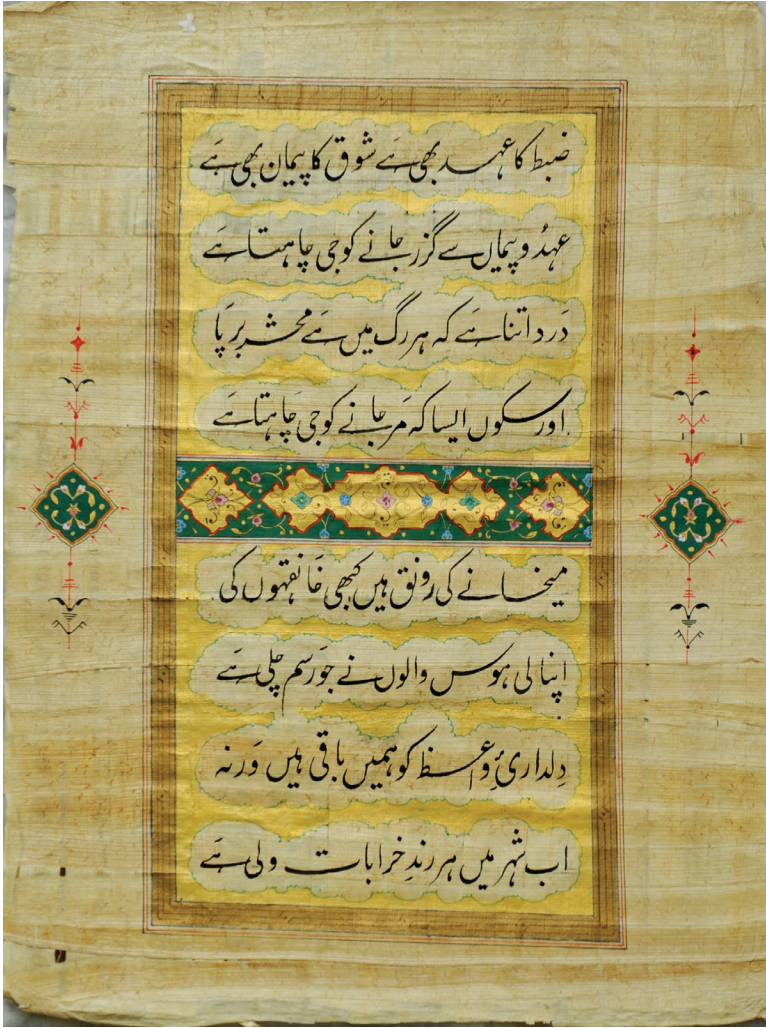 ضبط کا عہد بھی ہے شوق کا پیمان بھی ہے
عہدُ و پیماں سے گزر جانے کو جی چاہتا ہے
دَرد اتنا ہے کہ ہر رگ میں ہے محشر برپا
اور سکوں ایسا کہ مَر جانے کو جی چاہتا ہے
میخانے کی رونق ہیں کبھی خانقہوں کی
اپنا لی ہوس والوں نے جو رسم چلی ہے
دِلداریٔ واعظ کو ہمیں باقی ہیں وَرنہ
اب شہر میں ہر رندِ خرابات ولی ہے